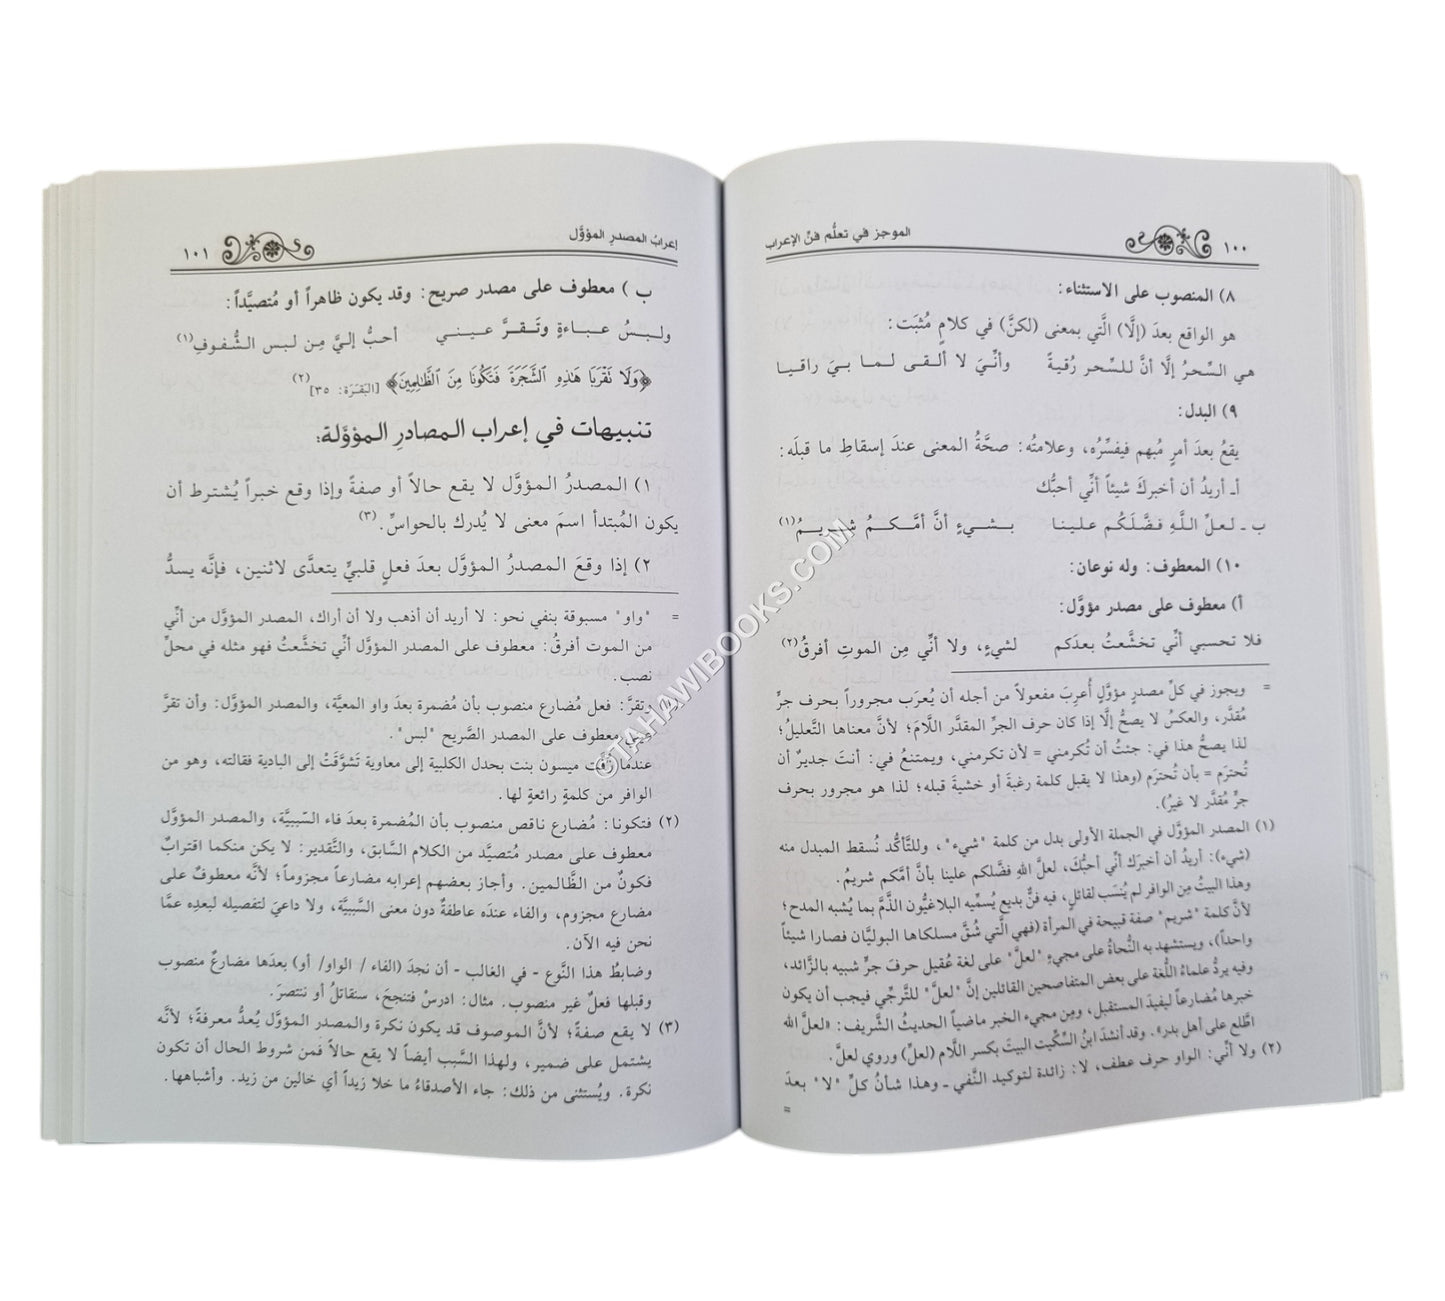 ١٠٠
الموجز في تعلُّم فنِّ الإعراب
٨) المنصوب على الاستثناء:
هو الواقع بعدَ (إلَّا) الَّتي بمعنى (لكنَّ) في كلامٍ مُثبَت:
هي السِّحرُ إلَّا أنَّ للسِّحر رُقيةً وأنِّيَ لا ألقى لما بيَ راقيا
٩) البدل:
يقعُ بعدَ أمرٍ مُبهم فيفسِّرُه، وعلامتُه: صحَّةُ المعنى عندَ إسقاطِ ما قبلَه:
أـ أريدُ أن أخبركَ شيئاً أنِّي أحبُّك
ب ـ لعلِّ اللَّهِ فضَّلَكُم علينا بشيءٍ أنَّ أمَّكمُ شريمُ(١)
١٠) المعطوف: وله نوعان:
أ) معطوف على مصدر مؤوَّل:
فلا تحسبي أنِّي تخشَّعتُ بعدَكم لشيءٍ، ولا أنِّي مِن الموتِ أفرقُ(٢)
= ويجوز في كلِّ مصدرٍ مؤوَّلٍ أُعرِبَ مفعولاً من أجله أن يُعرَب مجروراً بحرف جرٍّ
مُقدَّر، والعكسُ لا يصحُّ إلَّا إذا كان حرف الجرِّ المقدَّر اللَّامَ؛ لأنَّ معناها التَّعليلُ؛
لذا يصحُّ هذا في: جئتُ أن تُكرمني = لأن تكرمني، ويمتنعُ في: أنتَ جديرٌ أن
تُحترَم = بأن تُحترَم (وهذا لا يقبل كلمة رغبةَ أو خشيةَ قبله؛ لذا هو مجرور بحرف
جرٍّ مُقدَّر لا غيرُ).
(١) المصدر المؤوَّل في الجملة الأولى بدل من كلمة "شيء"، وللتَّأكُّد نُسقط المبدل منه
(شيء): أريدُ أن أخبرَك أنِّي أحبُّكَ، لعلَّ اللهِ فضَّلكم علينا بأنَّ أمَّكم شريمُ.
وهذا البيتُ مِن الوافر لم يُنسَب لقائل، فيه فنٌّ بديع يُسمِّيه البلاغيُّون الذَّمَّ بما يُشبه المدح؛
لأنَّ كلمة "شريم" صفة قبيحة في المرأة (فهي الَّتي شُقَّ مسلكاها البوليَّان فصارا شيئاً
واحداً)، ويستشهد به النُّحاةُ على مجيءِ "لعلَّ" على لغة عُقيل حرفَ جرٍّ شبيه بالزَّائد،
وفيه يردُّ علماءُ اللُّغة على بعض المتفاصحين القائلين إنَّ "لعلَّ" للتَّرجِّي فيجب أن يكون
خبرها مُضارعاً ليفيدَ المستقبل، ومِن مجيء الخبر ماضياً الحديثُ الشَّريف: «لعلَّ الله
اطَّلع على أهل بدر». وقد أنشدَ ابنُ السِّكِّيت البيتَ بكسر اللَّام (لعلِّ) وروي لعلَّ.
(٢) ولا أنِّي: الواو حرف عطف، لا: زائدة لتوكيد النَّفي ـ وهذا شأنُ كلِّ "لا" بعدَ
=
إعرابُ المصدرِ المؤوَّل
١٠١
ب ) معطوف على مصدر صريح: وقد يكون ظاهراً أو مُتصيَّداً:
ولـبسُ عـباءةٍ وتَـقـرَّ عـيـني أحبُّ إليَّ مِن لبس الشُّفوفِ(١)
﴿وَلَا تَقْرَبَا هَٰذِهِ الشَّجَرَةَ فَتَكُونَا مِنَ الظَّالِمِينَ﴾ [البَقَرَة: ٣٥](٢)
تنبيهات في إعراب المصادرِ المؤوَّلة:
١) المصدرُ المؤوَّل لا يقع حالاً أو صفةً وإذا وقع خبراً يُشترط أن
يكون المُبتدأ اسمَ معنى لا يُدرك بالحواسِّ.(٣)
٢) إذا وقعَ المصدرُ المؤوَّل بعدَ فعلٍ قلبيٍّ يتعدَّى لاثنين، فإنَّه يسدُّ
= "واو" مسبوقة بنفي نحو: لا أريد أن أذهب ولا أن أراك، المصدر المؤوَّل من أنِّي
من الموت أفرقُ: معطوف على المصدر المؤوَّل أنِّي تخشَّعتُ فهو مثله في محلِّ
نصب.
وتقرَّ: فعل مُضارع منصوب بأن مُضمرة بعدَ واو المعيَّة، والمصدر المؤوَّل: وأن تقرَّ
عيني معطوف على المصدر الصَّريح "لبس".
عندما زُفَّت ميسون بنت بحدل الكلبية إلى معاوية تَشوَّقَتْ إلى البادية فقالته، وهو من
الوافر من كلمةٍ رائعةٍ لها.
(٢) فتكونا: مُضارع ناقص منصوب بأن المُضمرة بعدَ فاء السَّببيَّة، والمصدر المؤوَّل
معطوف على مصدر مُتصيَّد من الكلام السَّابق، والتَّقدير: لا يكن منكما اقترابٌ
فكونٌ من الظَّالمين. وأجاز بعضهم إعرابه مضارعاً مجزوماً؛ لأنَّه معطوفٌ على
مضارع مجزوم، والفاء عندَه عاطفةٌ دون معنى السَّببيَّة، ولا داعيَ لتفصيله لبعدِه عمَّا
نحن فيه الآن.
وضابطُ هذا النَّوع - في الغالب - أن نجدَ (الفاء / الواو/ أو) بعدَها مضارعٌ منصوب
وقبلها فعلٌ غير منصوب. مثال: ادرسْ فتنجحَ، سنقاتلُ أو ننتصرَ.
(٣) لا يقع صفةً؛ لأنَّ الموصوف قد يكون نكرة والمصدر المؤوَّل يُعدُّ معرفةً؛ لأنَّه
يشتمل على ضمير، ولهذا السَّبب أيضاً لا يقع حالاً فمن شروط الحال أن تكون
نكرة. ويُستثنى من ذلك: جاء الأصدقاءُ ما خلا زيداً أي خالين من زيد. وأشباهها.
©TAHAWIBOOKS.COM